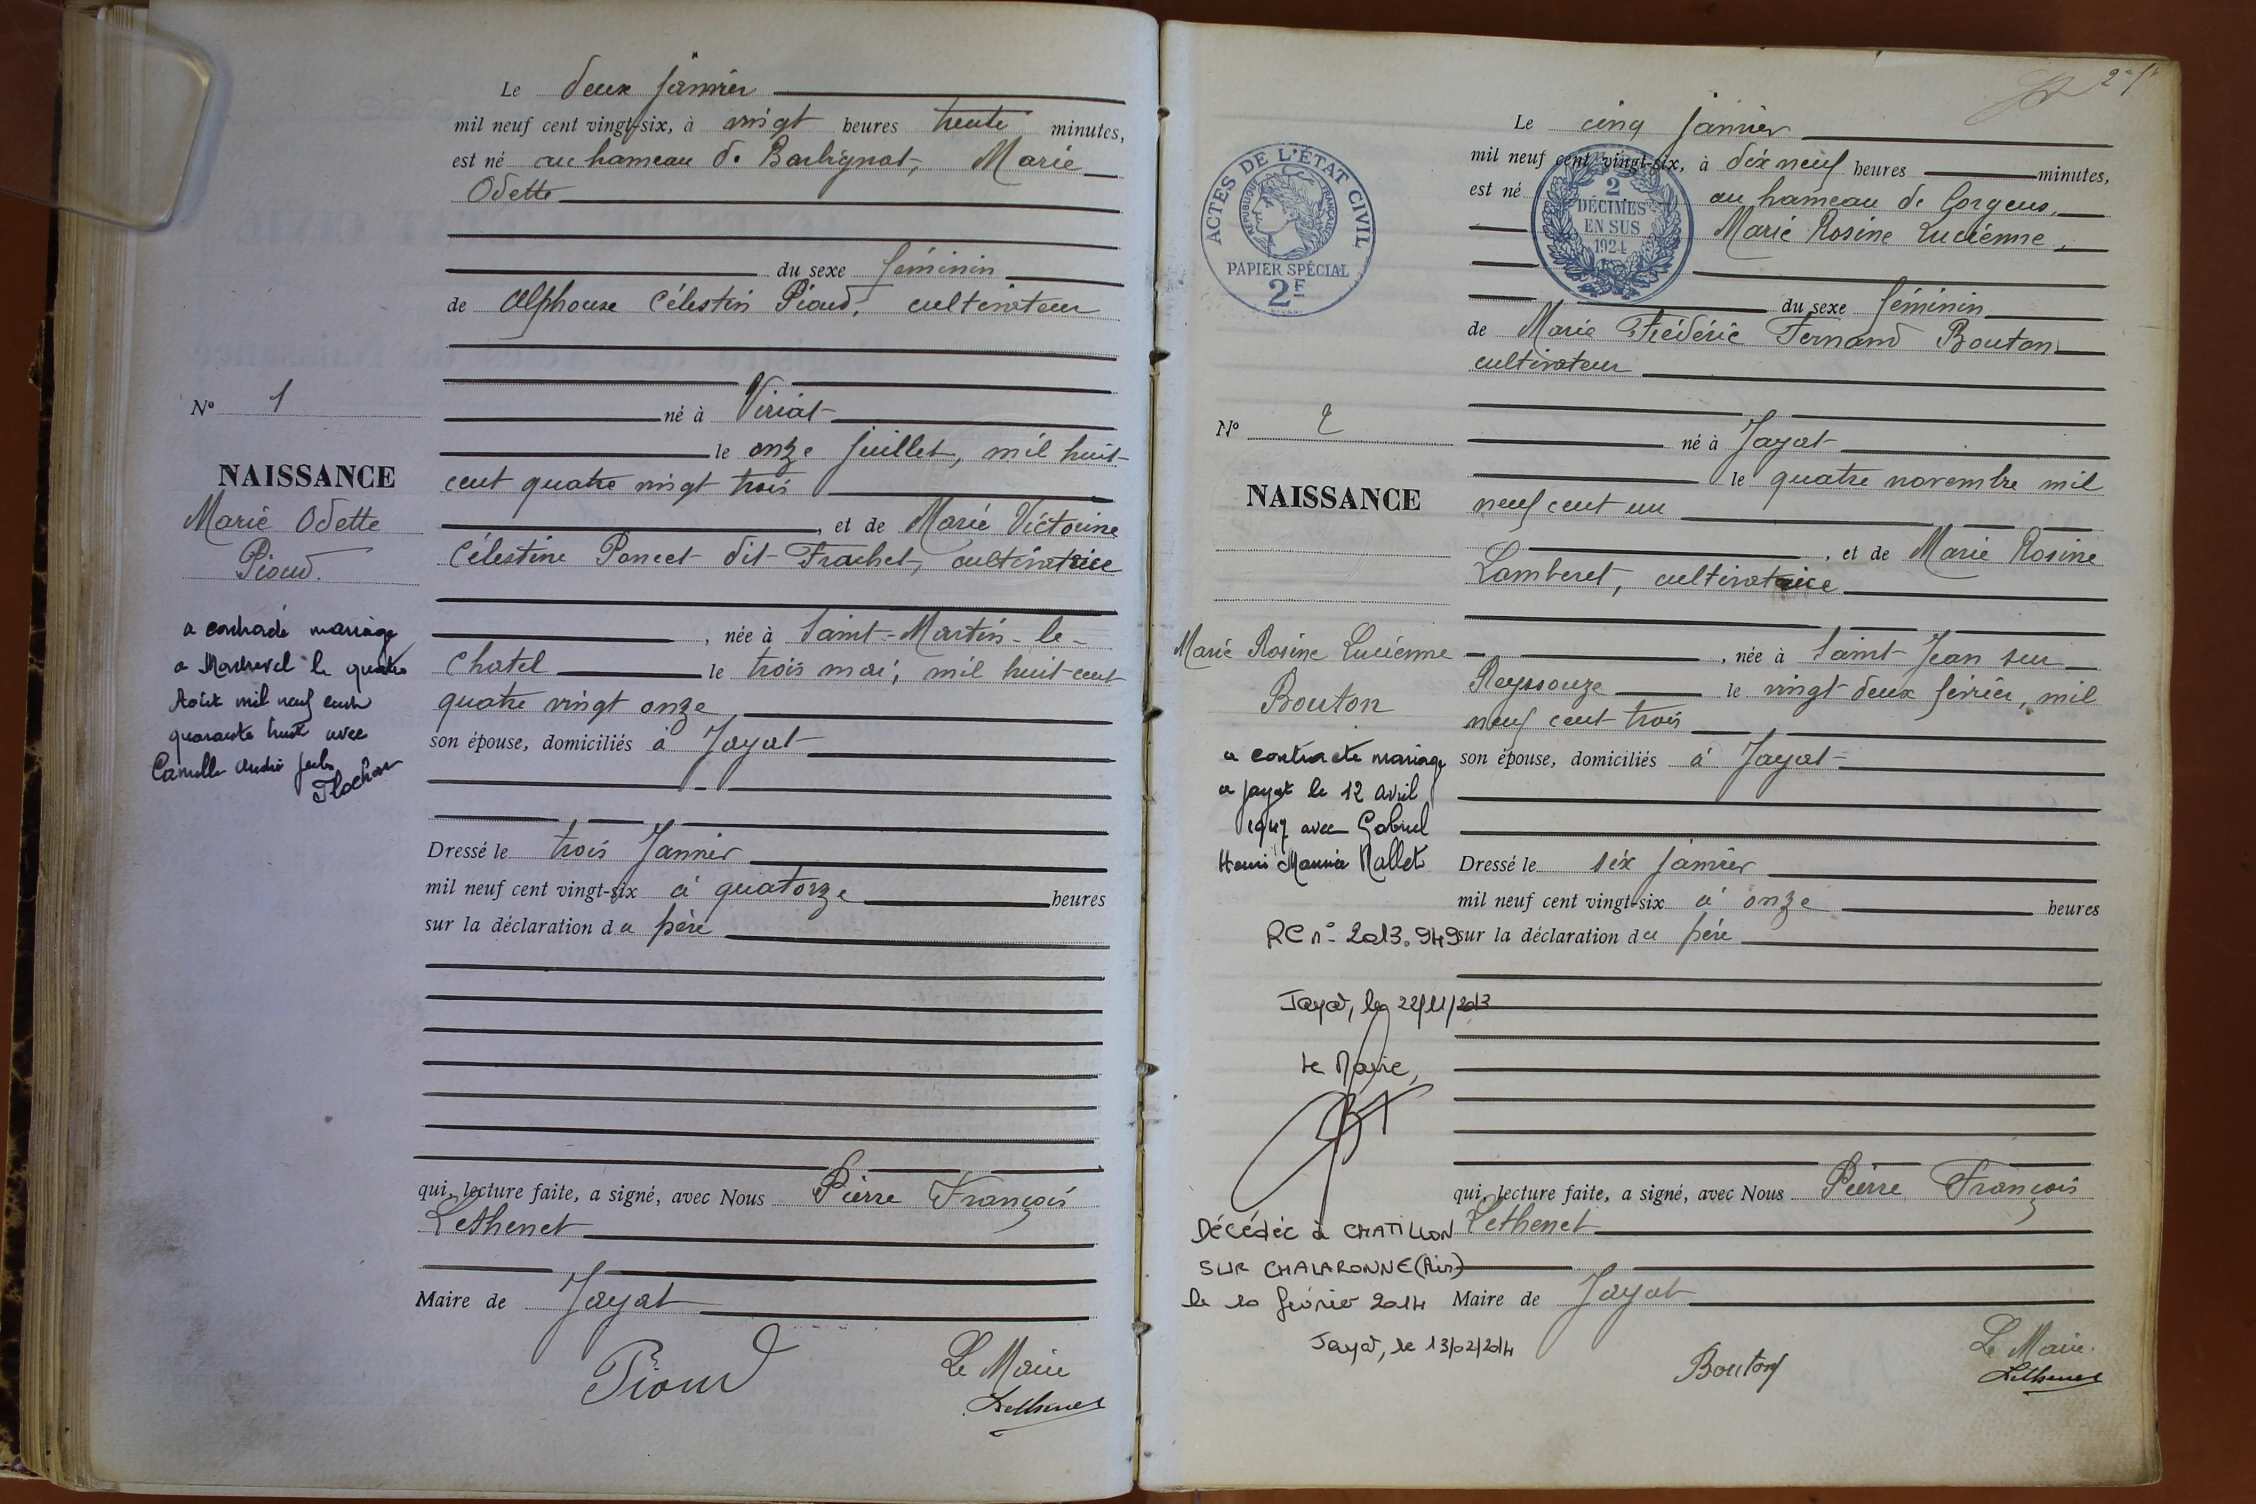 Le deux janvier
mil neuf cent vingt-six, à vingt heures trente minutes,
est né au hameau de Barbignat, Marie
Odette
du sexe féminin
de Alphonse Célestin Pioud, cultivateur
né à Viriat
le onze juillet, mil huit
cent quatre vingt trois
et de Marie Victorine
Célestine Poncet dit Frachet, cultivatrice
, née à Saint-Martin-le-
Chatel le trois mai, mil huit-cent
quatre vingt onze
son épouse, domiciliés à Jayat
Dressé le trois Janvier
mil neuf cent vingt-six à quatorze heures
sur la déclaration du père
qui, lecture faite, a signé, avec Nous Pierre François
Lethenet
Maire de Jayat
Pioud
Le Maire
Lethenet
No 1
NAISSANCE
Marie Odette
Pioud.
a contracté mariage
a Montrevel le quatre
Août mil neuf cent
quarante huit avec
Camille André Jules
2
Le cinq janvier
mil neuf cent vingt-six, à dix neuf heures minutes,
est né au hameau de Corgeus,
Marie Rosine Lucienne,
du sexe féminin
de Marie Frédéric Fernand Bouton
cultivateur
né à Jayat
le quatre novembre mil
neuf cent un
, et de Marie Rosine
Lamberet, cultivatrice
, née à Saint Jean sur
Reyssouze le vingt-deux février, mil
neuf cent trois
son épouse, domiciliés à Jayat
Dressé le six janvier
mil neuf cent vingt-six à onze heures
sur la déclaration du père
qui, lecture faite, a signé, avec Nous Pierre François
Lethenet
Maire de Jayat
Bouton
Le Maire.
Lethenet
ACTES DE L'ÉTAT CIVIL
RÉPUBLIQUE FRANÇAISE
PAPIER SPÉCIAL
2F
2
DÉCIMES
EN SUS
1924
No 2
NAISSANCE
Marie Rosine Lucienne
Bouton
a contracté mariage
a Jayat le 12 avril
1947 avec Gabriel
Henri Maurice Nallet
RC n° 2013.949
Jayat, le 22/11/2013
Le Maire,
Décédée à CHATILLON
SUR CHALARONNE (Ain)
le 10 février 2014
Jayat, le 13/02/2014